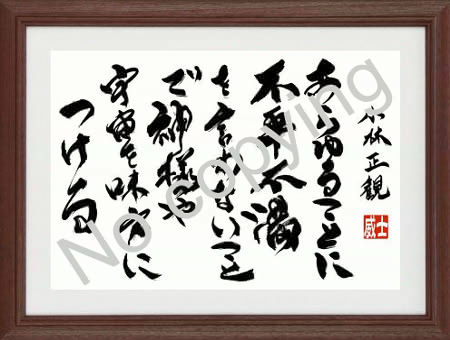 小林正観
あらゆることに
不平不満
を言わないこと
で神様や
宇宙を味方に
つける
No copying